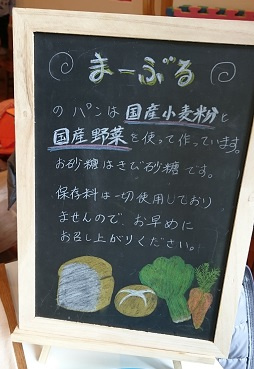 まーぶる
のパンは国産小麦粉と
国産野菜を使って作っています。
お砂糖はきび砂糖です。
保存料は一切使用しており
ませんので お早めに
お召し上がりください。